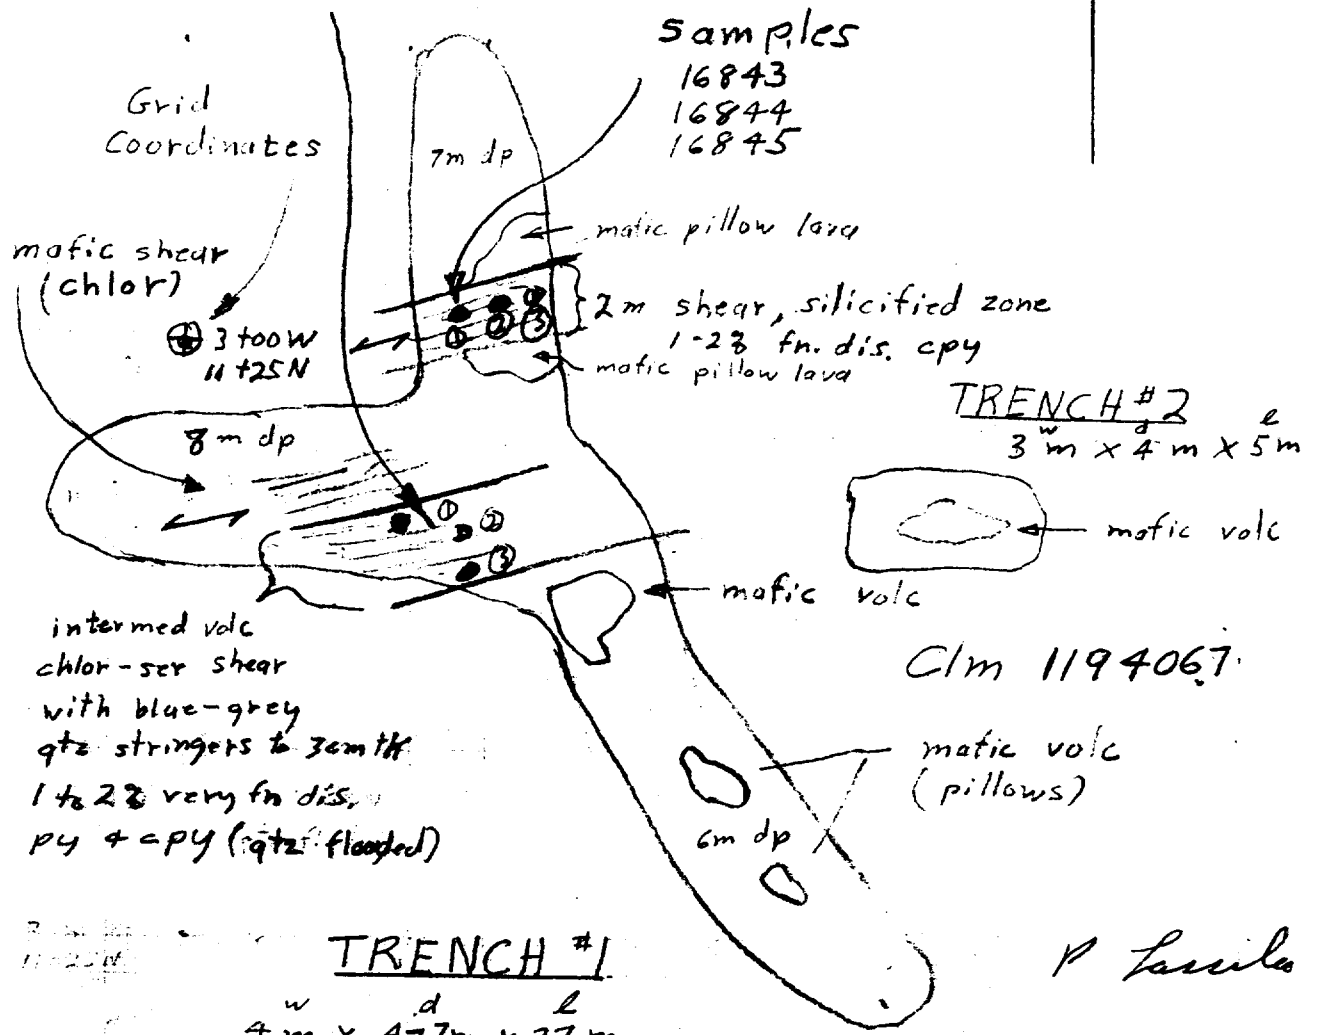 Samples
16843
16844
16845
Grid
Coordinates
7m dp
mafic pillow lava
mafic shear
(chlor)
2m shear, silicified zone
1-2% fn. dis. cpy
① ② ③
3+00W
11+25N
mafic pillow lava
TRENCH #2
w d l
3 m x 4 m x 5 m
8m dp
① ② ③
mafic volc
mafic volc
intermed volc
chlor-ser shear
with blue-grey
qtz stringers to 3cm th
1 to 2% very fn dis.
py & cpy (qtz flooded)
Clm 1194067
mafic volc
(pillows)
6m dp
TRENCH #1
w d l
P Lassila